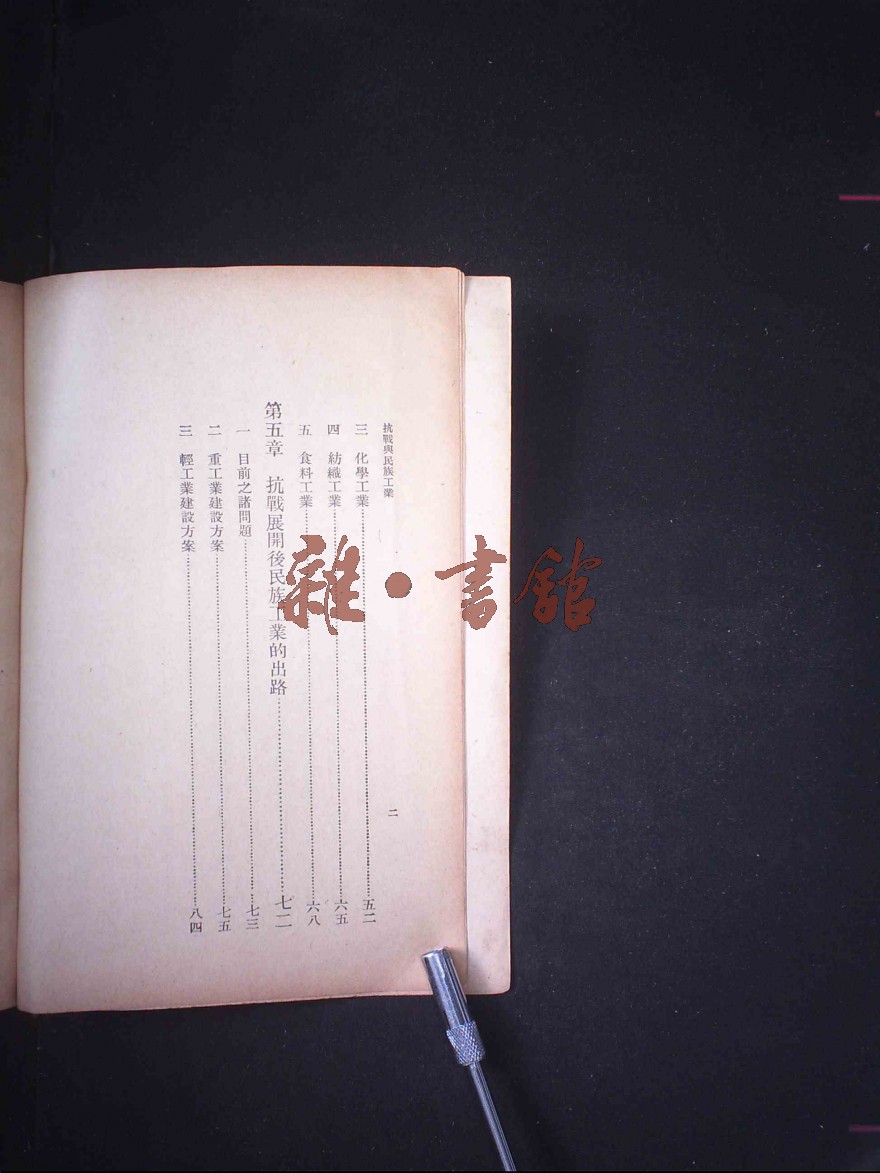 抗戰與民族工業
二
三　化學工業……五二
四　紡織工業……六五
五　食料工業……六八
第五章　抗戰展開後民族工業的出路……七二
一　目前之諸問題……七三
二　重工業建設方案……七五
三　輕工業建設方案……八四
雜·書館